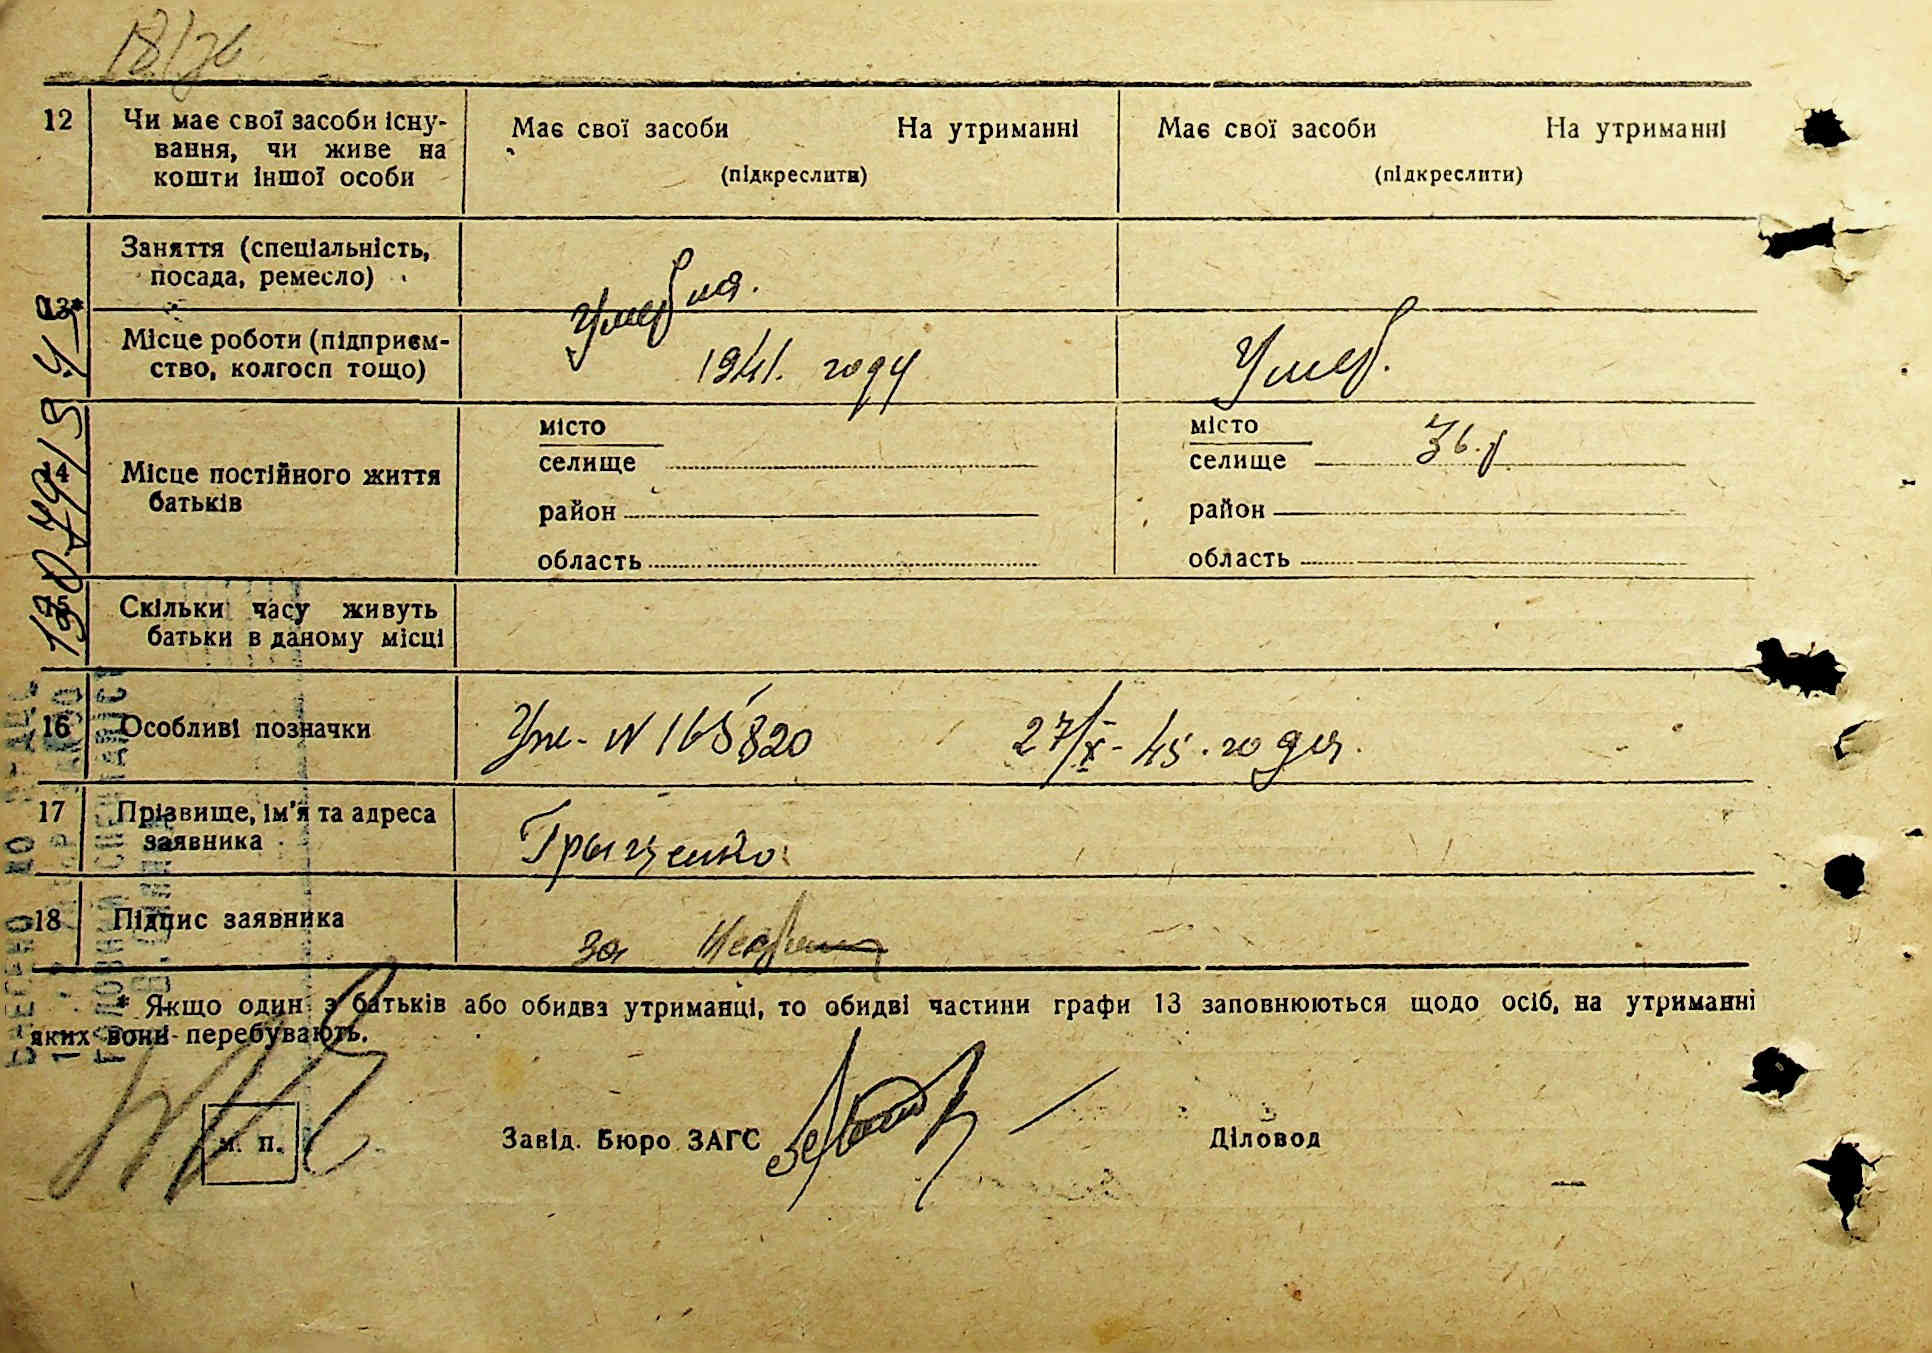 18/26
12 Чи має свої засоби існу- Має свої засоби На утриманні Має свої засоби На утриманні
вання, чи живе на
кошти іншої особи (підкреслити) (підкреслити)
Заняття (спеціальність,
посада, ремесло)
13*
Умерла.
Місце роботи (підприєм-
ство, колгосп тощо) 1941. году Умер.
місто місто
селище селище 36.г
14 Місце постійного життя
батьків
район район
область область
15 Скільки часу живуть
батьки в даному місці
16 Особливі позначки N 165820 27/X-45. года.
17 Прізвище, ім'я та адреса
заявника Грыценко
18 Підпис заявника за
* Якщо один з батьків або обидва утриманці, то обидві частини графи 13 заповнюються щодо осіб, на утриманні
яких вони перебувають.
М. П. Завід. Бюро ЗАГС Діловод